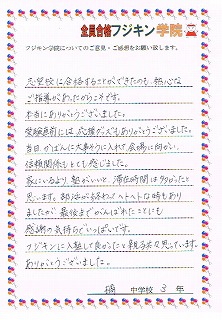 全員合格フジキン学院
フジキン学院についてのご意見・ご感想をお願い致します。
志望校に合格することができたのも、熱心な
ご指導があったからこそです。
本当にありがとうございました。
受験直前には応援が大変ありがとうございました。
当日かばんに大事そうに入れて会場に向かい、
信頼関係もとても感じました。
家にいるより、塾がいいと、滞在時間は多かったと
思います。部活が終わってヘトヘトな時もあり
ましたが、最後までがんばれたことにも
感謝の気持ちでいっぱいです。
フジキンに入塾して良かったと親子共々思っています。
ありがとうございました。
中学校 3 年